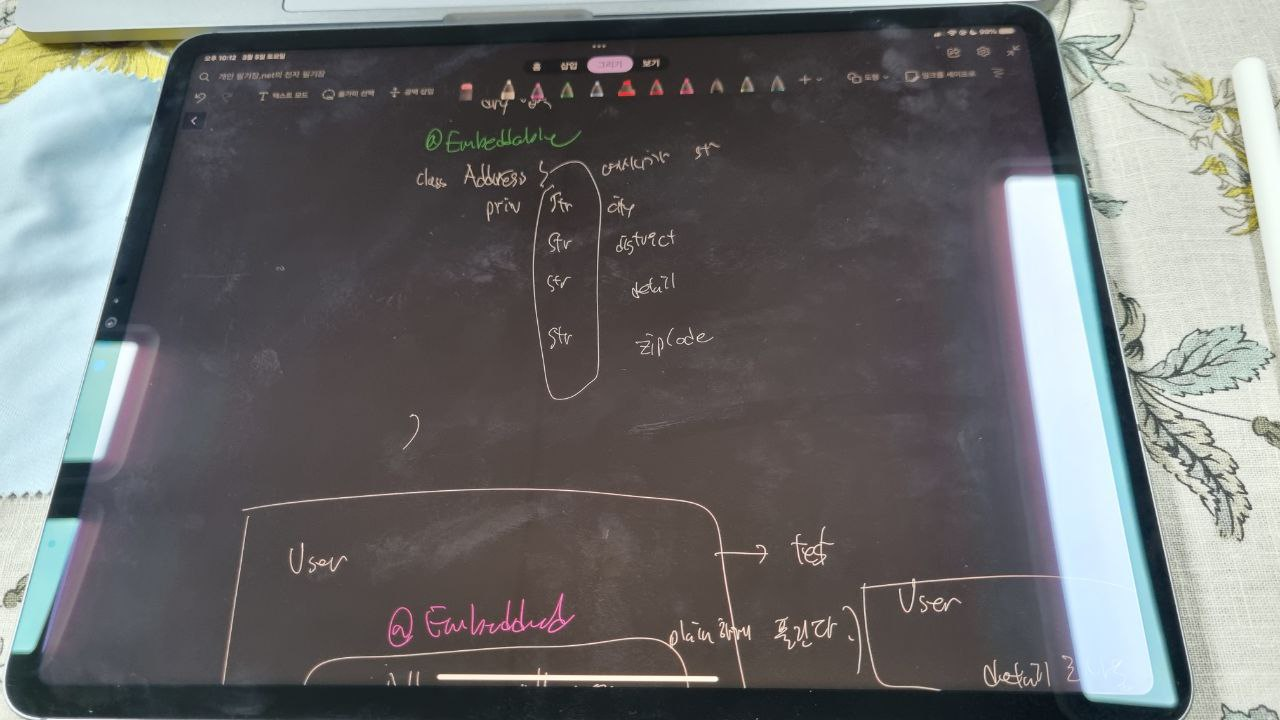 오후 10:12 3월 8일 토요일 99%
홈 삽입 그리기 보기
개인 필기장.net의 전자 필기장
텍스트 모드 올가미 선택 공백 삽입 도형 잉크를 셰이프로
@Embeddable
class Address {
priv Str city
Str district
Str detail
Str zipCode
}
User → test
@Embedded
plain하게 풀린다.
User
detail